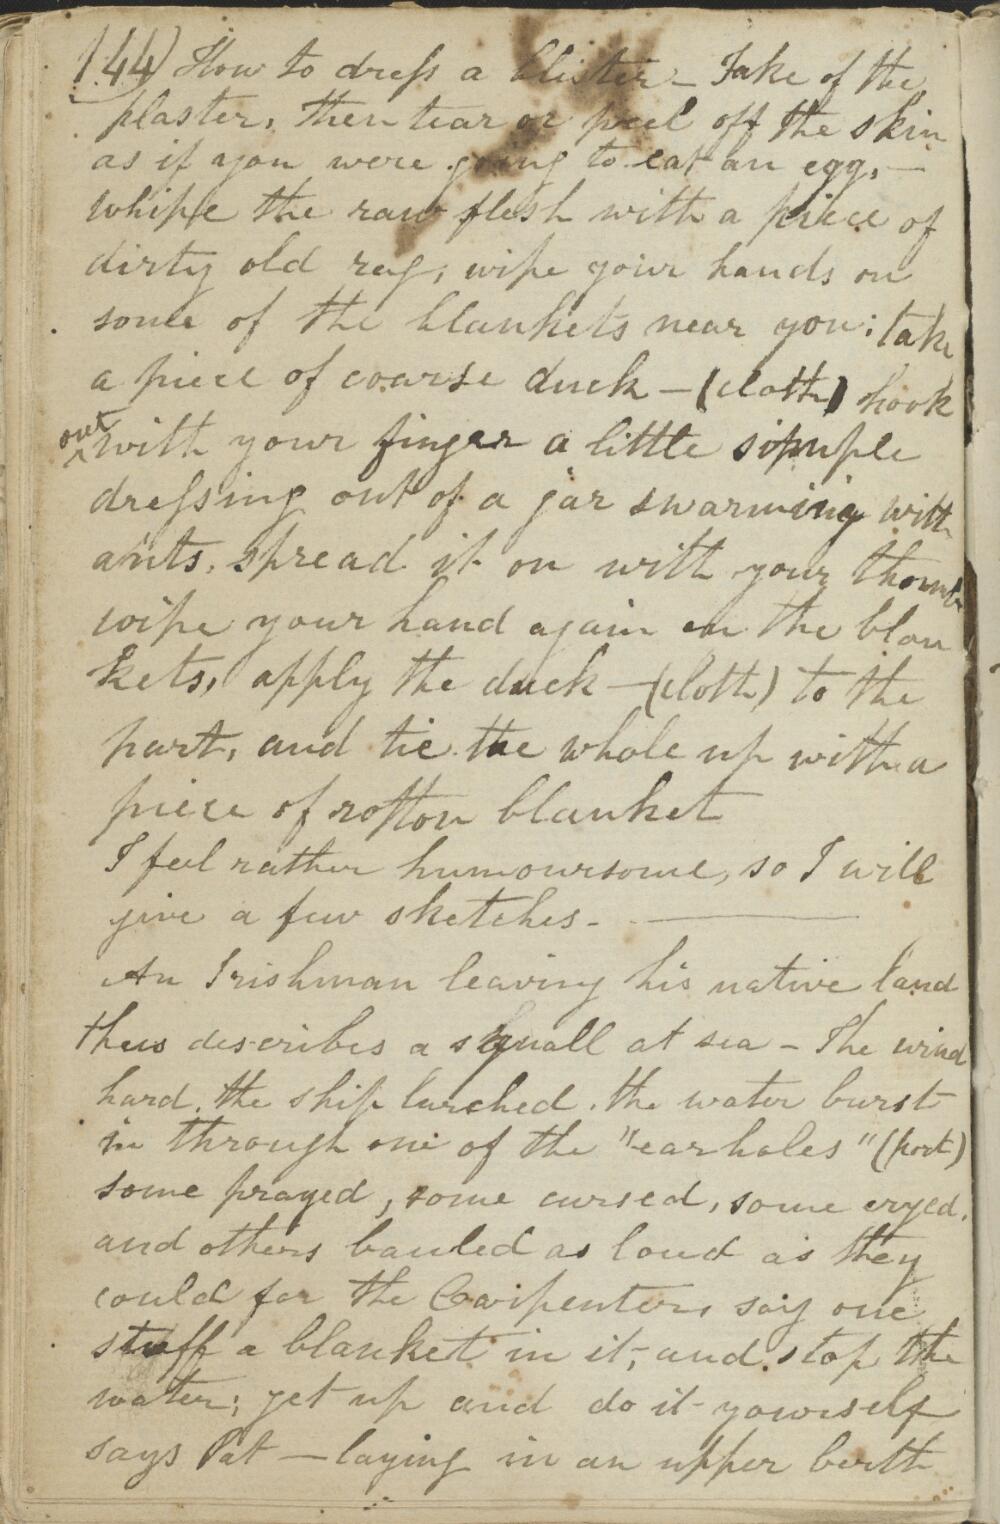 144) How to dress a blister - Take of the
plaster, then tear or peel off the skin
as if you were going to eat an egg, —
whipe the raw flesh with a piece of
dirty old rag, wipe your hands on
some of the blankets near you; take
a piece of coarse duck — (cloth) hook
out with your finger a little simple
dressing out of a jar swarming with
ants, spread it on with your thomb
wipe your hand again on the blan
kets, apply the duck — (cloth) to the
part, and tie the whole up with a
piece of rotton blanket
I feel rather humoursome, so I will
give a few sketches - —
An Irishman leaving his native land
thus describes a squall at sea - The wind
hard, the ship lurched, the water burst
in through one of the "earholes" (port)
some prayed, some cursed, some cryed,
and others bauled as loud as they
could for the Carpenter, say one
stuff a blanket in it, and stop the
water; get up and do it yourself
says Pat — laying in an upper berth